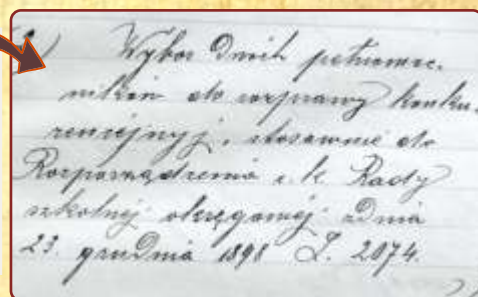 ) Wybór dwóch pełnomoc-
ników do rozprawy konku-
rencyjnej, stosownie do
Rozporządzenia c. k. Rady
szkolnej okręgowej z dnia
23. grudnia 1898 L. 2074.